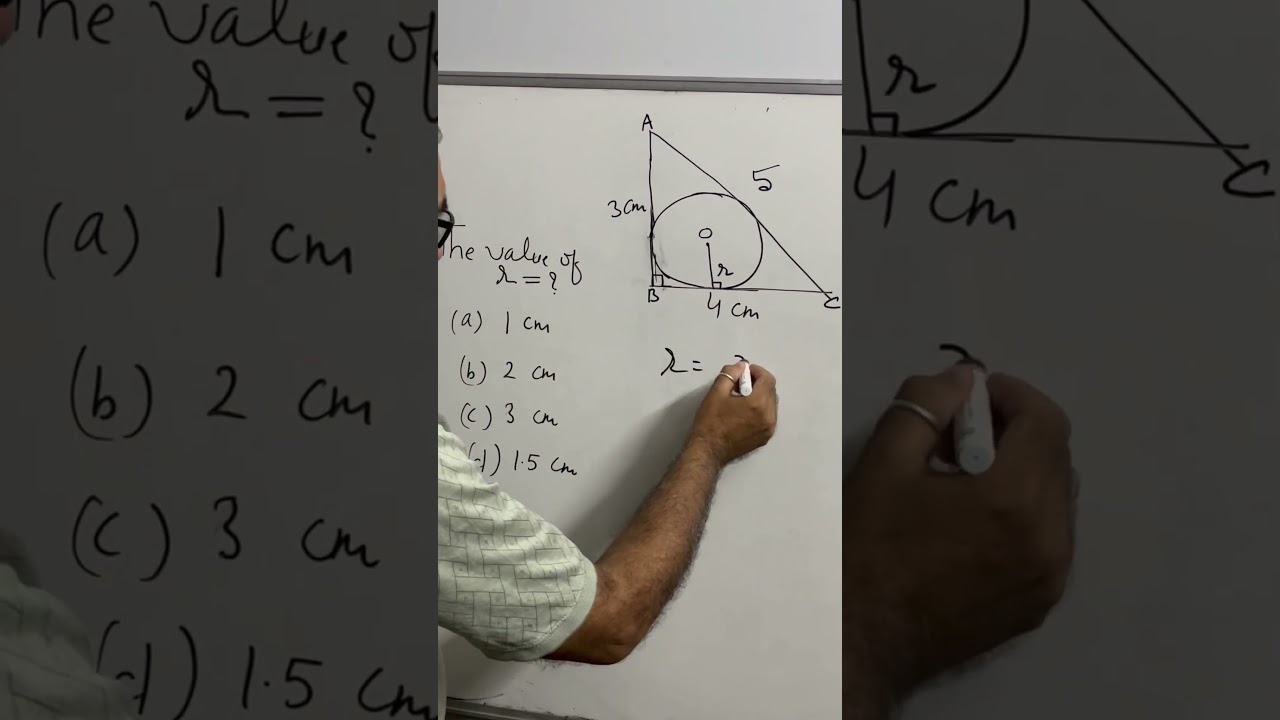 The value of
r = ?
(a) 1 cm
(b) 2 cm
(c) 3 cm
(d) 1.5 cm
A
3 cm
5
O
r
B
4 cm
C
r =